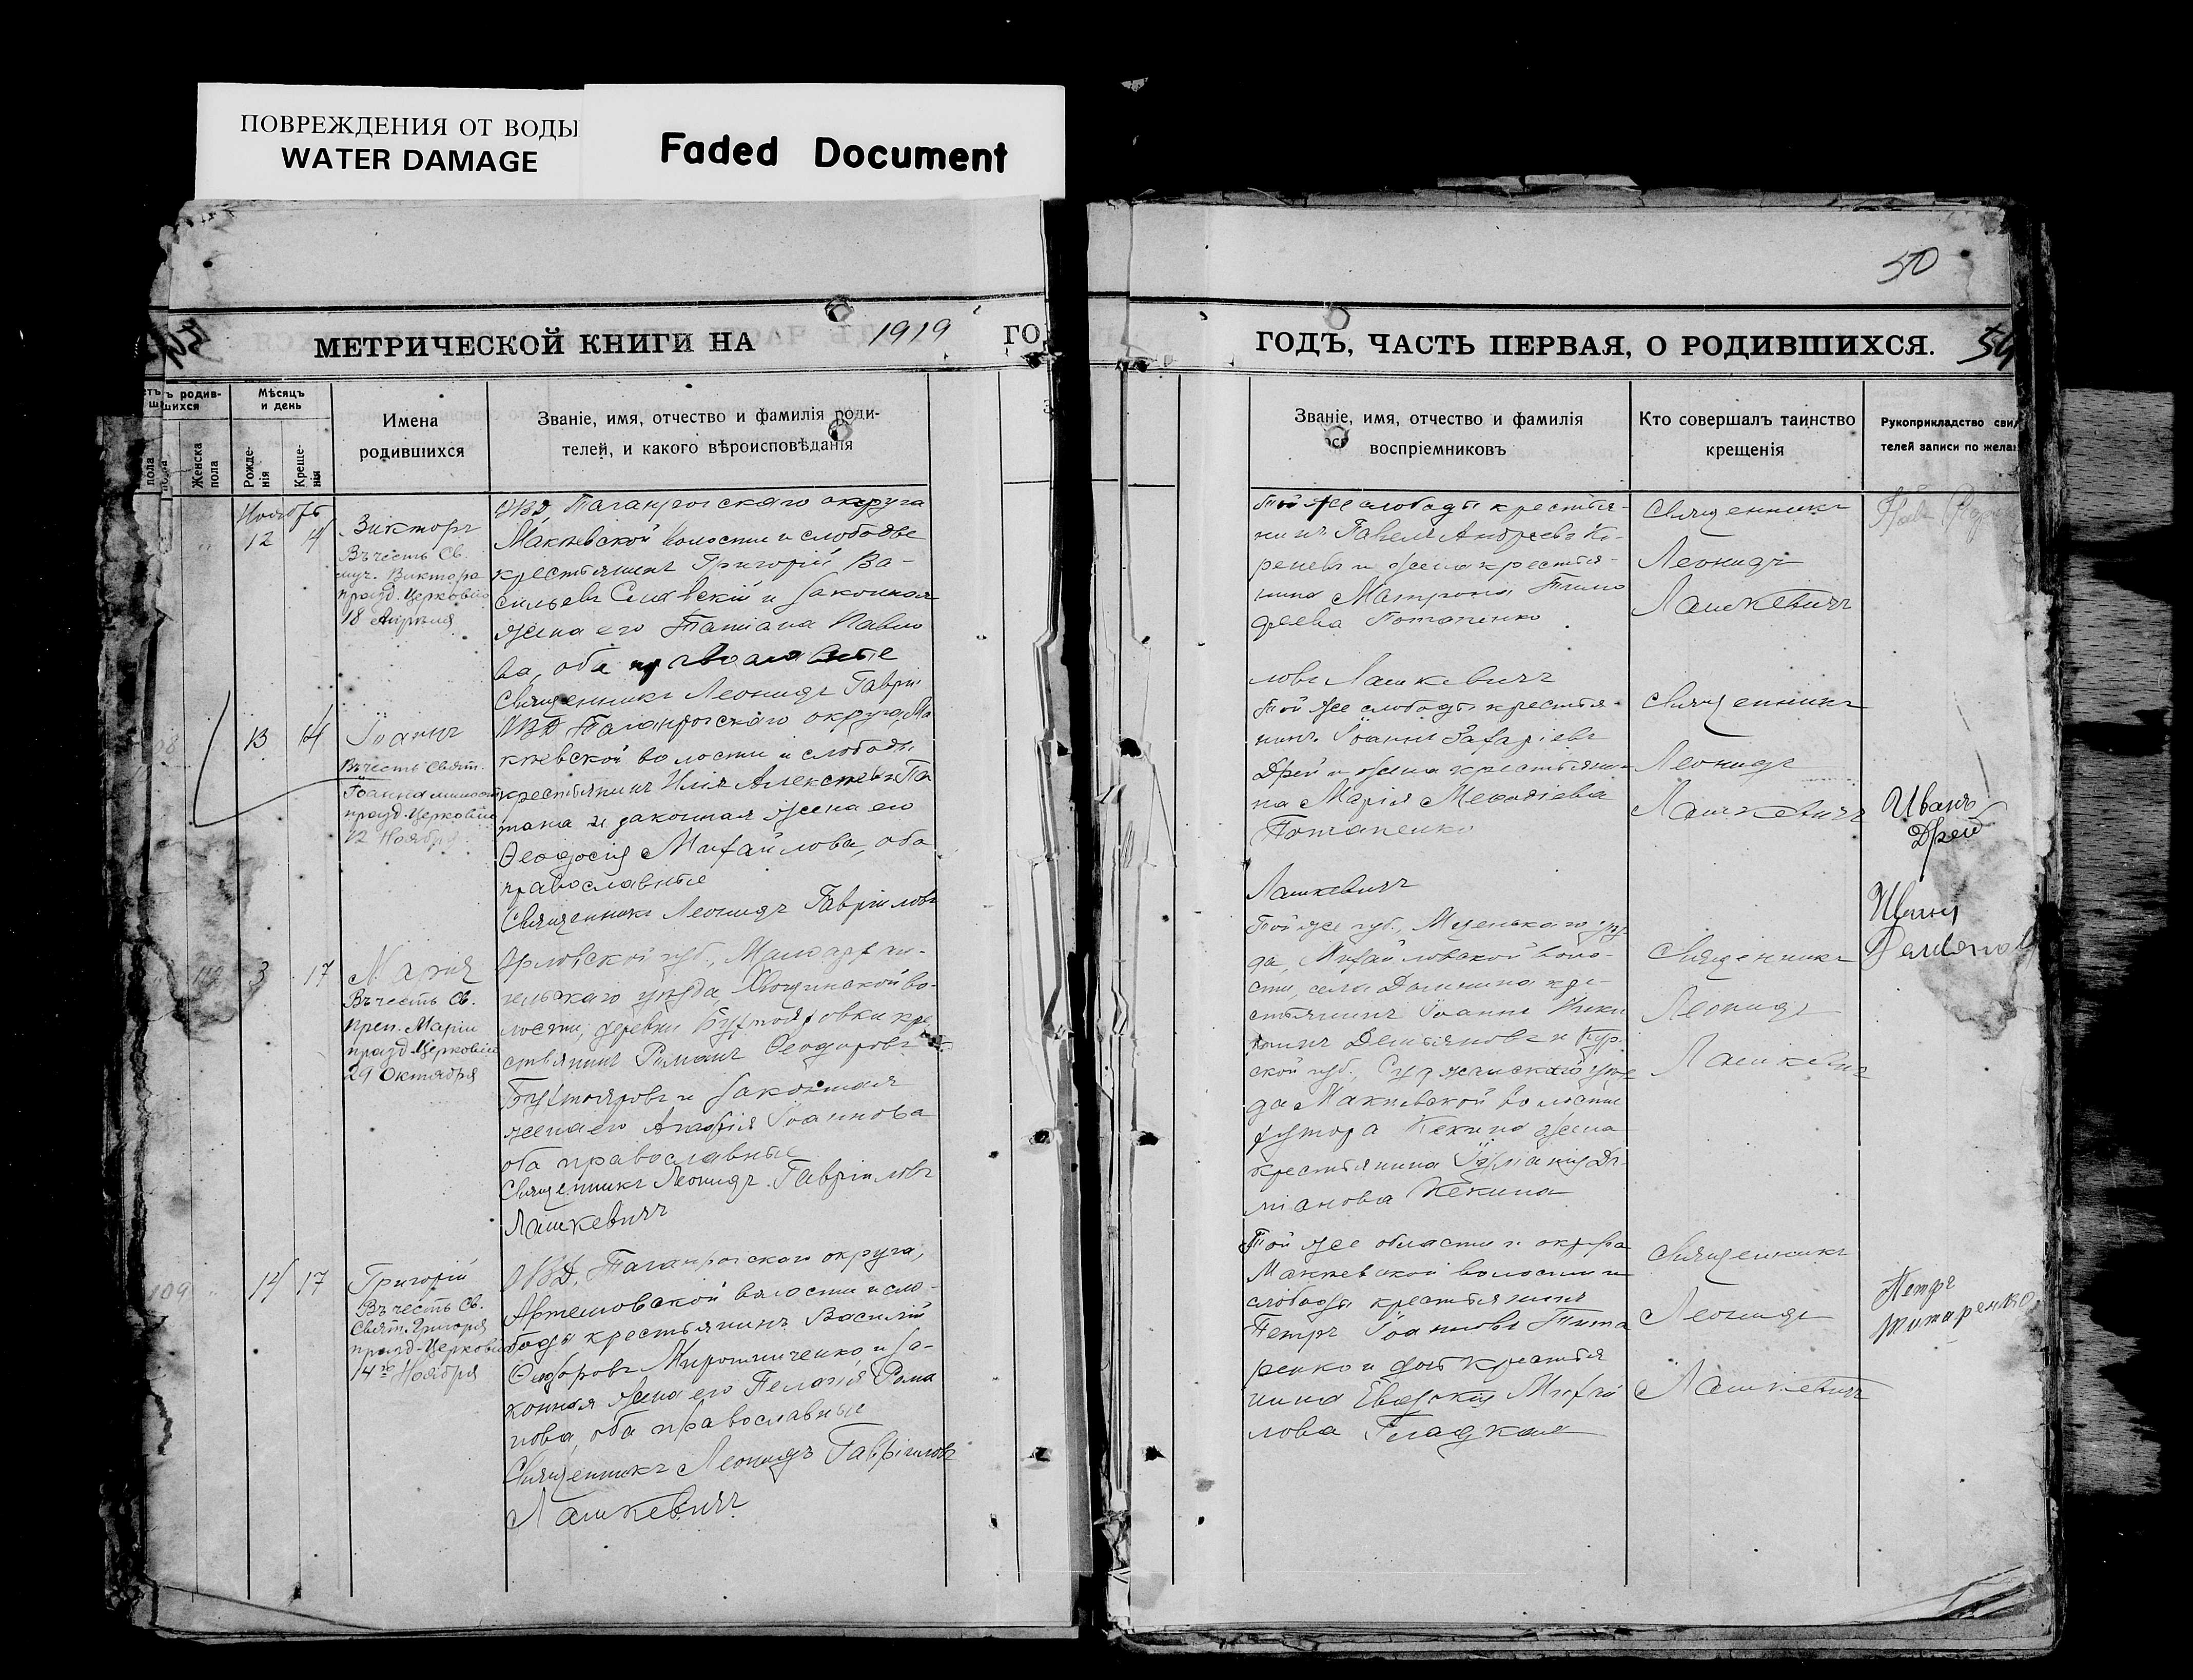 ПОВРЕЖДЕНИЯ ОТ ВОДЫ
WATER DAMAGE
Faded Document
50
МЕТРИЧЕСКОЙ КНИГИ НА 1919 ГО
ГОДЪ, ЧАСТЬ ПЕРВАЯ, О РОДИВШИХСЯ.
54
ъ родив-
шихся
Женска
пола
Мѣсяцъ
и день
Рожде-
нія
Креще-
нія
Имена
родившихся
Званіе, имя, отчество и фамилія роди-
телей, и какого вѣроисповѣданія
Званіе, имя, отчество и фамилія
воспріемниковъ
Кто совершалъ таинство
крещенія
Рукоприкладство сви
телей записи по жела
Ноябрь
12 14
Викторъ
Въ честь Св.
муч. Виктора
празд. Церковію
18 Апрѣля
ОВД Таганрогскаго округа
Макѣевской волости и слободы
крестьянинъ Григорій Ва-
сильевъ и законная
жена его Татіана Павло
ва, оба православные
Священникъ Леонидъ Гавріи
Той же слободы крестья-
нинъ Павелъ Андреевъ Ко-
реневъ и жена крестья-
нина Матрона Тимо
феева Потапенко
ловъ Лашкевичъ
Священникъ
Леонидъ
Лашкевичъ
13 14
Іоаннъ
Въ честь Свят.
Іоанна милост
празд. Церковію
12 Ноября
ОВД Таганрогскаго округа, Ма
кѣевской волости и слободы
крестьянинъ Илія Алексѣевъ Па
тана и законная жена его
Ѳеодосія Михайлова, оба
православные
Священникъ Леонидъ Гавріиловъ
Той же слободы крестья-
нинъ Іоаннъ Захаріевъ
Дрей и жена крестьяни-
на Марія Меѳодіева
Потапенко
Лашкевичъ
Священникъ
Леонидъ
Лашкевичъ
Иванъ
Дрей
3 17
Марія
Въ честь Св.
преп. Маріи
празд. Церковію
29 Октября
Орловской губ., Малоархан-
гельскаго уѣзда, во-
лости, деревни кре
стьянинъ Романъ Ѳеодоровъ
и законная
жена его Іоаннова
оба православные
Священникъ Леонидъ Гавріиловъ
Лашкевичъ
Той же губ., уѣз
да, Михайловской воло-
сти, села кре-
стьянинъ Іоаннъ
Демьяновъ и Кур-
ской губ., уѣз
да Макѣевской волости
хутора Кекина жена
крестьянина
Кекина
Священникъ
Леонидъ
Лашкевичъ
Иванъ
109 14 17
Григорій
Въ честь Св.
Свят. Григорія
празд. Церковію
14го Ноября
ОВД. Таганрогскаго округа,
Артемовской волости и сло-
боды крестьянинъ Василій
Ѳеодоровъ Мирошниченко и за-
конная жена его Пелагія Рома
нова, оба православные
Священникъ Леонидъ Гавріиловъ
Лашкевичъ
Той же области и округа
Макѣевской волости и
слободы крестьянинъ
Петръ Іоанновъ Тита
ренко и дочь крестья
нина Евдокія Михай
лова Гладкая
Священникъ
Леонидъ
Лашкевичъ
Петръ
Титаренко